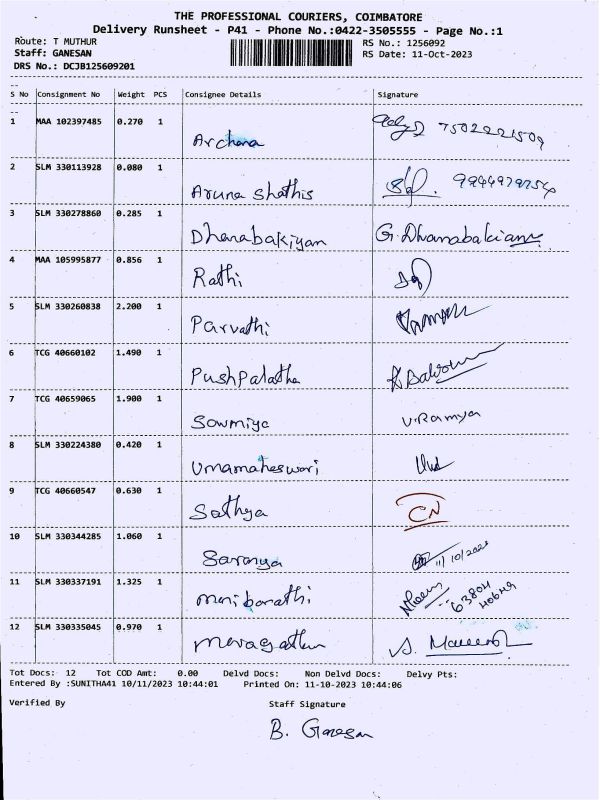 THE PROFESSIONAL COURIERS, COIMBATORE
Delivery Runsheet - P41 - Phone No.:0422-3505555 - Page No.:1
Route: T MUTHUR RS No.: 1256092
Staff: GANESAN RS Date: 11-Oct-2023
DRS No.: DCJB125609201
S No Consignment No Weight PCS Consignee Details Signature
1 MAA 102397485 0.270 1 Archana 7502221509
2 SLM 330113928 0.080 1 Aruna Shathis
3 SLM 330278860 0.285 1 Dhanabakiyam G. Dhanabakiam
4 MAA 105995877 0.856 1 Rathi
5 SLM 330260838 2.200 1 Parvathi
6 TCG 40660102 1.490 1 Pushpalatha
7 TCG 40659065 1.900 1 Sowmiya V.Ramya
8 SLM 330224380 0.420 1 Umamaheswari
9 TCG 40660547 0.630 1 Sathya CN
10 SLM 330344285 1.060 1 Saranya 11/10/2023
11 SLM 330337191 1.325 1 Manibarathi 63804
12 SLM 330335045 0.970 1 Maragatham
Tot Docs: 12 Tot COD Amt: 0.00 Delvd Docs: Non Delvd Docs: Delvy Pts:
Entered By :SUNITHA41 10/11/2023 10:44:01 Printed On: 11-10-2023 10:44:06
Verified By Staff Signature
B. Ganesan